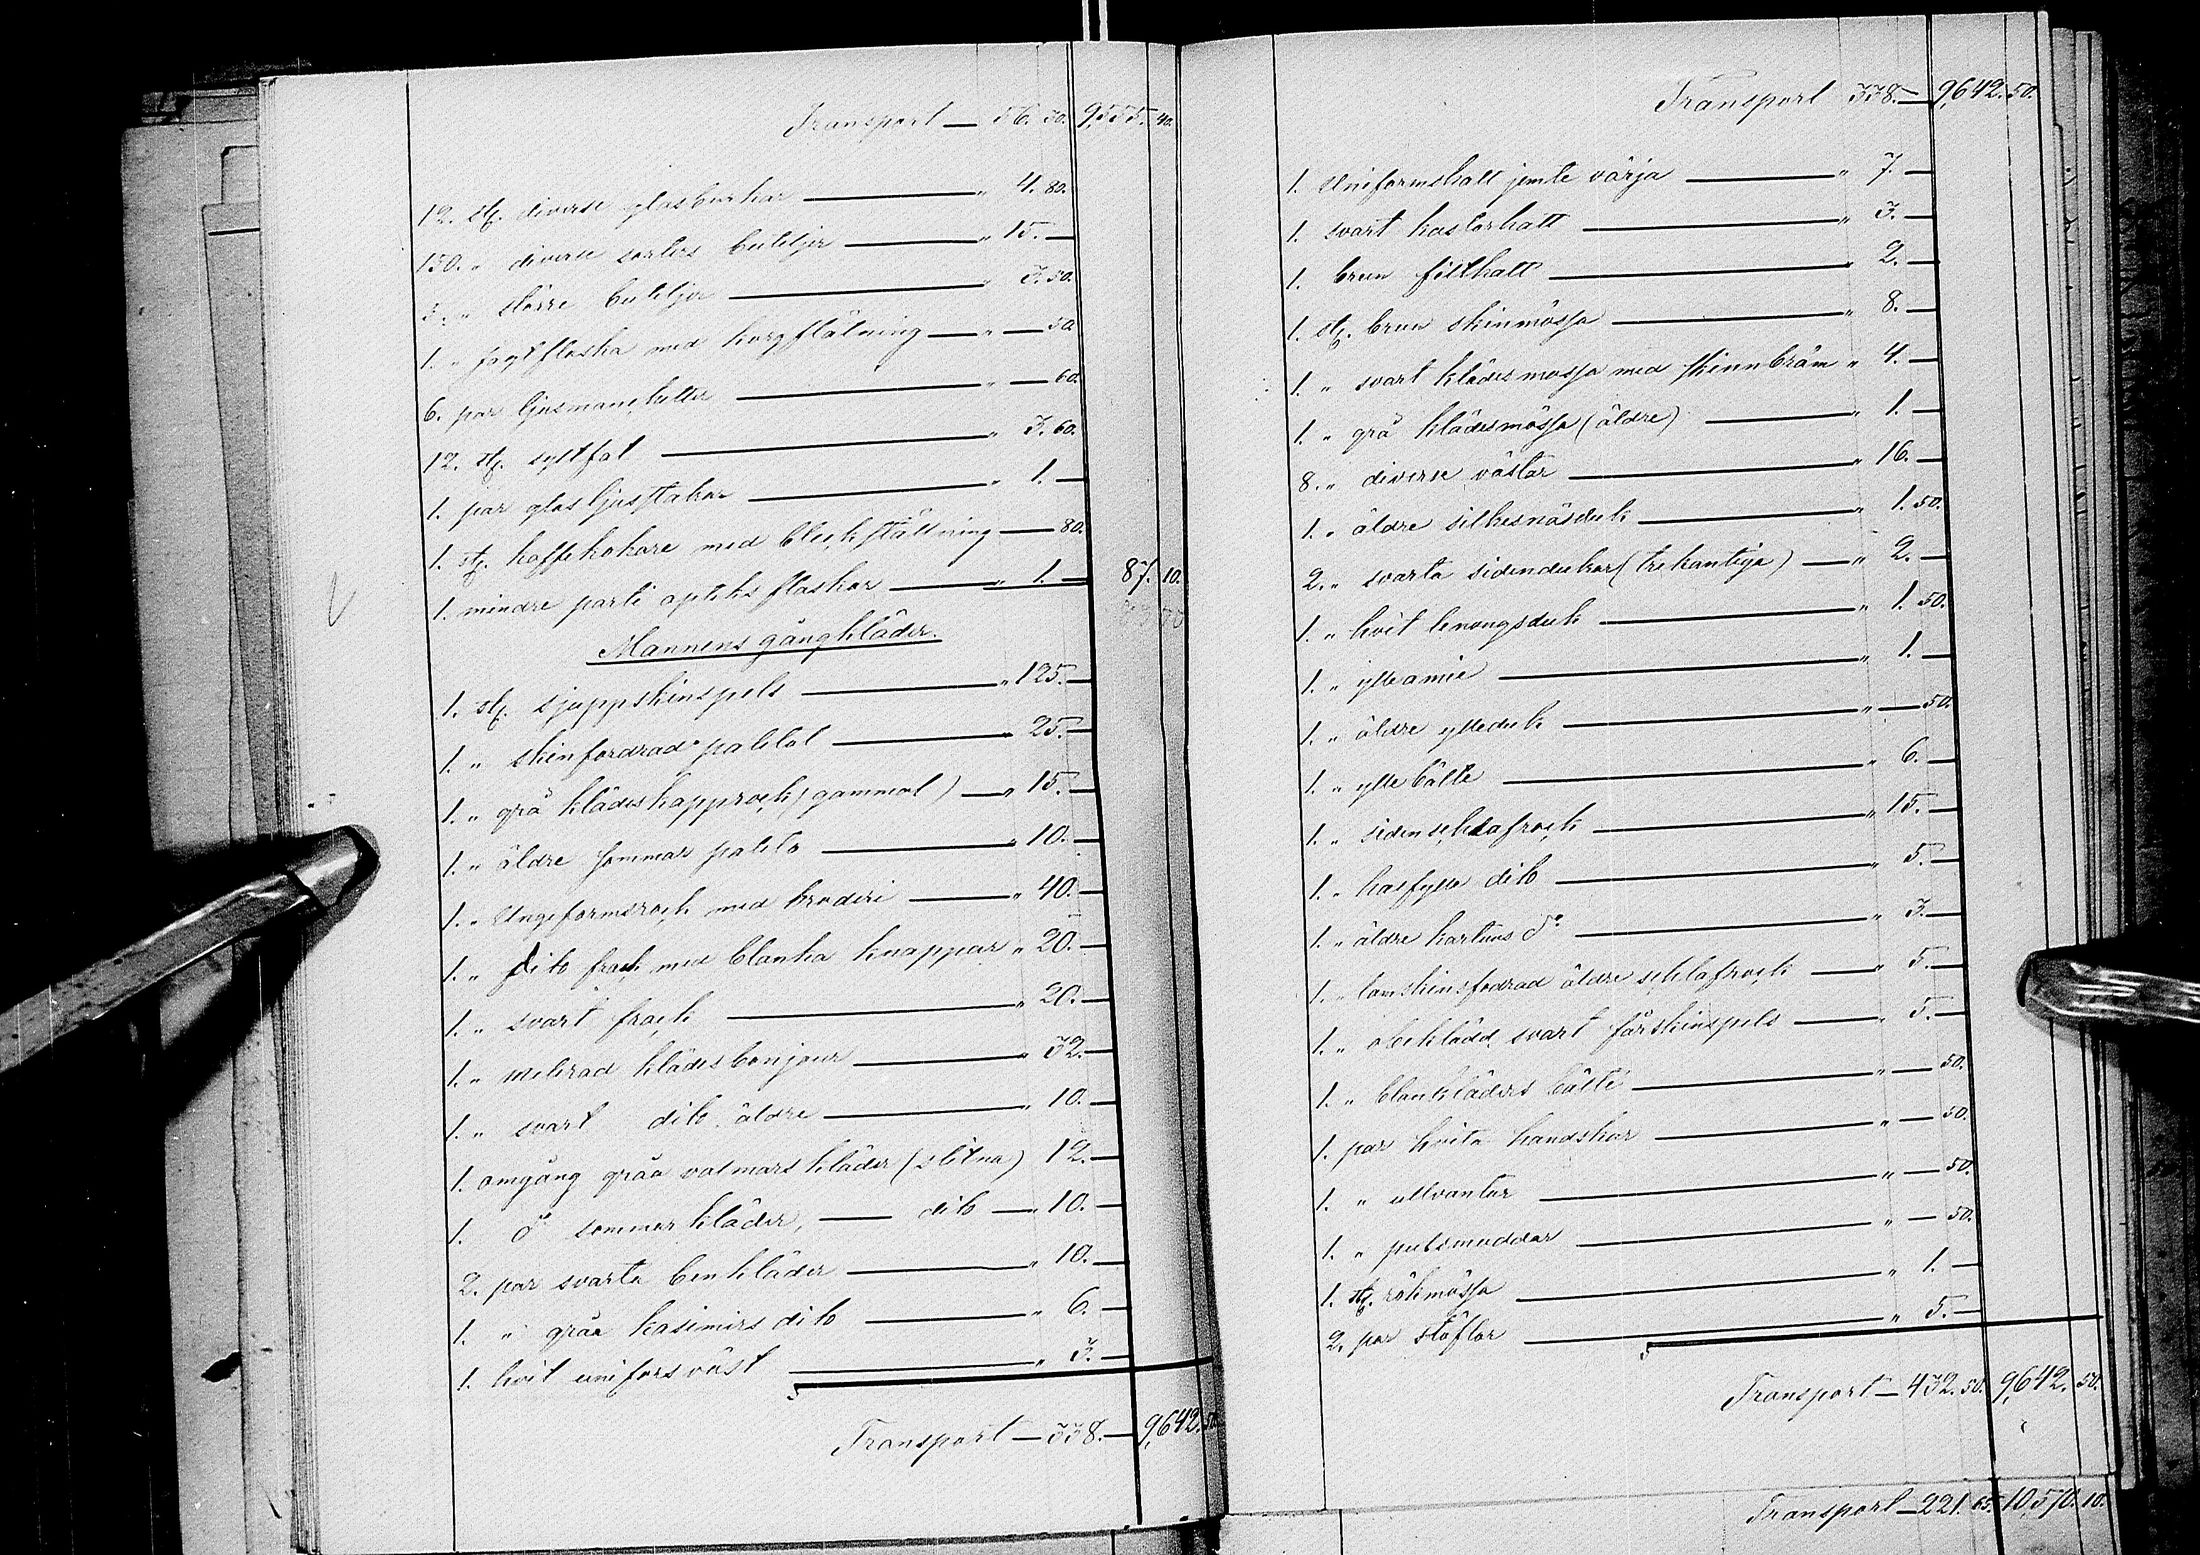 Transport — 56. 30. 9,555. 40.
12. st. diverse glasburkar — " 4. 80.
150. " diverse sorters buteljer — " 15. —
3. " större buteljer — " 3. 50.
1. " jagtflaska med korgflätning — " — 50
6. par ljusmanchetter — " — 60.
12. st. syltfat — " 3. 60.
1. par glasljusstakar — " 1. —
1. st. kaffekokare med bleckställning — 80.
1. mindre parti apteksflaskor — " 1. — 87. 10.
Mannens gångkläder.
1. st. sjuppskinspels — " 125. —
1. " skinfordrad paletot — " 25. —
1. " grå klädeskapprock (gammal) — " 15. —
1. " äldre sommar paleto — " 10. —
1. " Ungeformsrock med broderi — " 40. —
1. " Dito frack med blanka knappar " 20. —
1. " svart frack — " 20. —
1. " melerad klädesbonjour — " 32. —
1. " svart dito äldre — " 10. —
1. omgång gråa valmarskläder (slitna) 12. —
1. do sommerkläder, — dito — " 10. —
2. par svarta benkläder — " 10. —
1. " gråa kasimirs dito — " 6. —
1. hvit uniforsväst — " 3. —
Transport — 338. — 9,642. 50.
Transport 338. — 9,642. 50.
1. Uniformshatt jemte värja — " 7. —
1. svart kastorhatt — " 3. —
1. brun filthatt — " 2. —
1. st. brun skinmössa — " 8. —
1. " svart klädesmössa med skinnbräm " 4. —
1. " grå klädesmössa (äldre) — " 1. —
8. " diverse västar — " 16. —
1. " äldre silkesnäsduk — " 1. 50.
2. " svarta sidendukar (trekantiga) — " 2. —
1. " hvit lenongsduk — " 1. 50.
1. " ylleamie — " 1. —
1. " äldre ylleduk — " — 50.
1. " yllebälte — " 6. —
1. " sidenschlafrock — " 15. —
1. " halfylle dito — " 5. —
1. " äldre kartuns do — " 3. —
1. " lamskinsfodrad äldre schlafrock — " 5. —
1. " obeklädd svart fårskinspels — " 5. —
1. " blankläders bälte — " — 50.
1. par hvita handskar — " — 50.
1. " ullvantar — " — 50.
1. " pulsmuddar — " — 50.
1. st. rökmössa — " 1. —
2. par stöflar — " 5. —
Transport — 432. 50. 9,642. 50.
Transport — 221. 65. 10,570. 10.